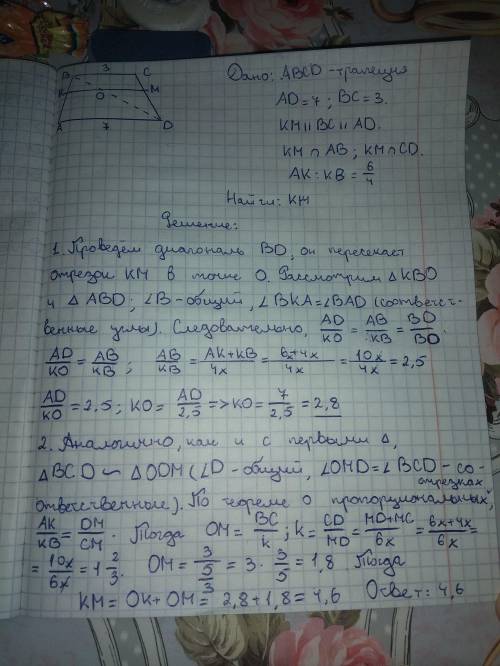 3
B C
K O M
A 7 D
Дано: ABCD - трапеция
AD = 7 ; BC = 3.
KM || BC || AD.
KM ∩ AB ; KM ∩ CD.
AK : KB = 6/4
Найти: KM
Решение:
1. Проведём диагональ BD, он пересекает
отрезок KM в точке O. Рассмотрим △ KBO
и △ ABD ; ∠B - общий, ∠BKA = ∠BAD (соответст-
венные углы). Следовательно, AD/KO = AB/KB = BD/BO.
AD/KO = AB/KB ; AB/KB = AK+KB/4x = 6x+4x/4x = 10x/4x = 2,5
AD/KO = 2,5 ; KO = AD/2,5 => KO = 7/2,5 = 2,8
2. Аналогично, как и с первыми △,
△BCD ∽ △ODM (∠D - общий, ∠OMD = ∠BCD - со-
ответственные). По теореме о пропорциональных отрезках,
AK/KB = DM/CM. Тогда OM = BC/k ; k = CD/MD = MD+MC/6x = 6x+4x/6x =
= 10x/6x = 1 2/3. OM = 3/(5/3) = 3 · 3/5 = 1,8 Тогда
KM = OK + OM = 2,8 + 1,8 = 4,6 Ответ: 4,6